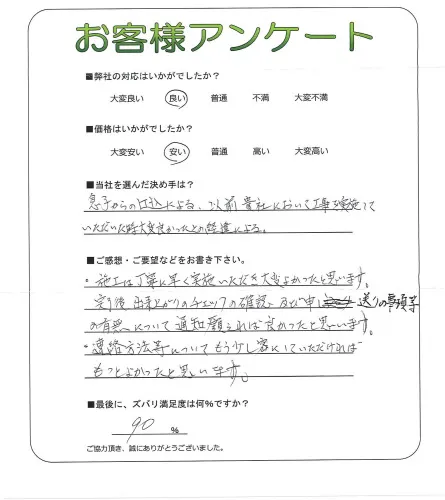 お客様アンケート
■弊社の対応はいかがでしたか？
大変良い 良い 普通 不満 大変不満
■価格はいかがでしたか？
大変安い 安い 普通 高い 大変高い
■当社を選んだ決め手は？
息子からの口込による、以前貴社において工事実施して
いただいた時大変良かったとの経違による。
■ご感想・ご要望などをお書き下さい。
・施工は丁寧に早く実施いただき大変よかったと思います。
完了後 出来上がりのチェックの確認、及び申し送りの事項等
の有無について通知願えれば良かったと思います。
・連絡方法等についてもう少し密にしていただければ
もっとよかったと思います。
■最後に、ズバリ満足度は何%ですか？
90 %
ご協力頂き、誠にありがとうございました。